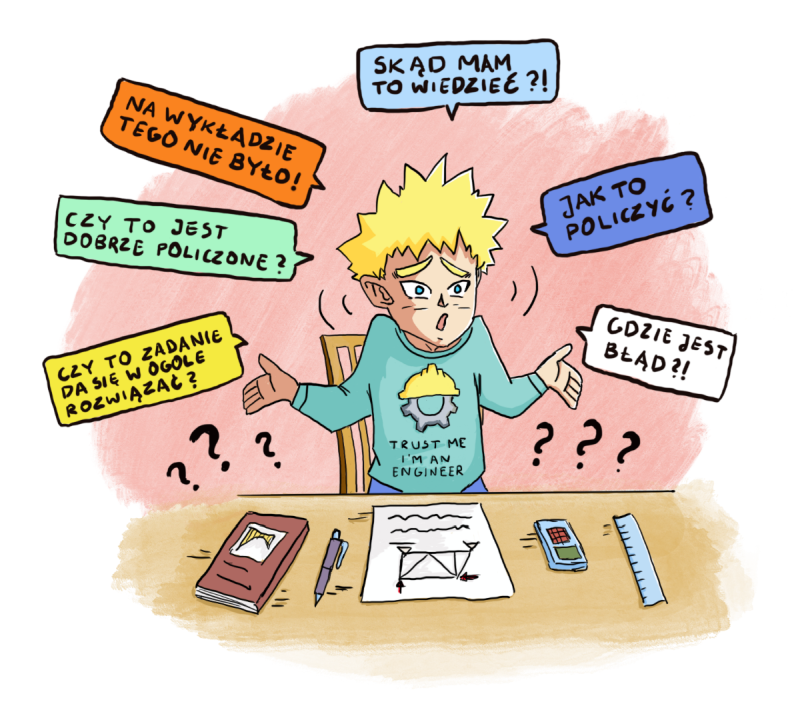 SKĄD MAM
TO WIEDZIEĆ ?!
NA WYKŁĄDZIE
TEGO NIE BYŁO!
JAK TO
POLICZYĆ ?
CZY TO JEST
DOBRZE POLICZONE ?
GDZIE JEST
BŁĄD?!
CZY TO ZADANIE
DA SIĘ W OGÓLE
ROZWIĄZAĆ ?
? ? ?
? ? ?
TRUST ME
I'M AN
ENGINEER